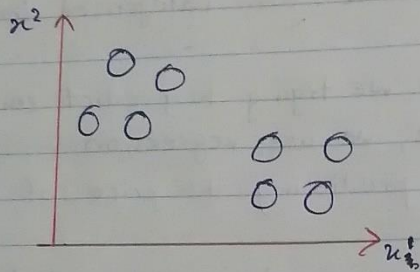 x²
x₁